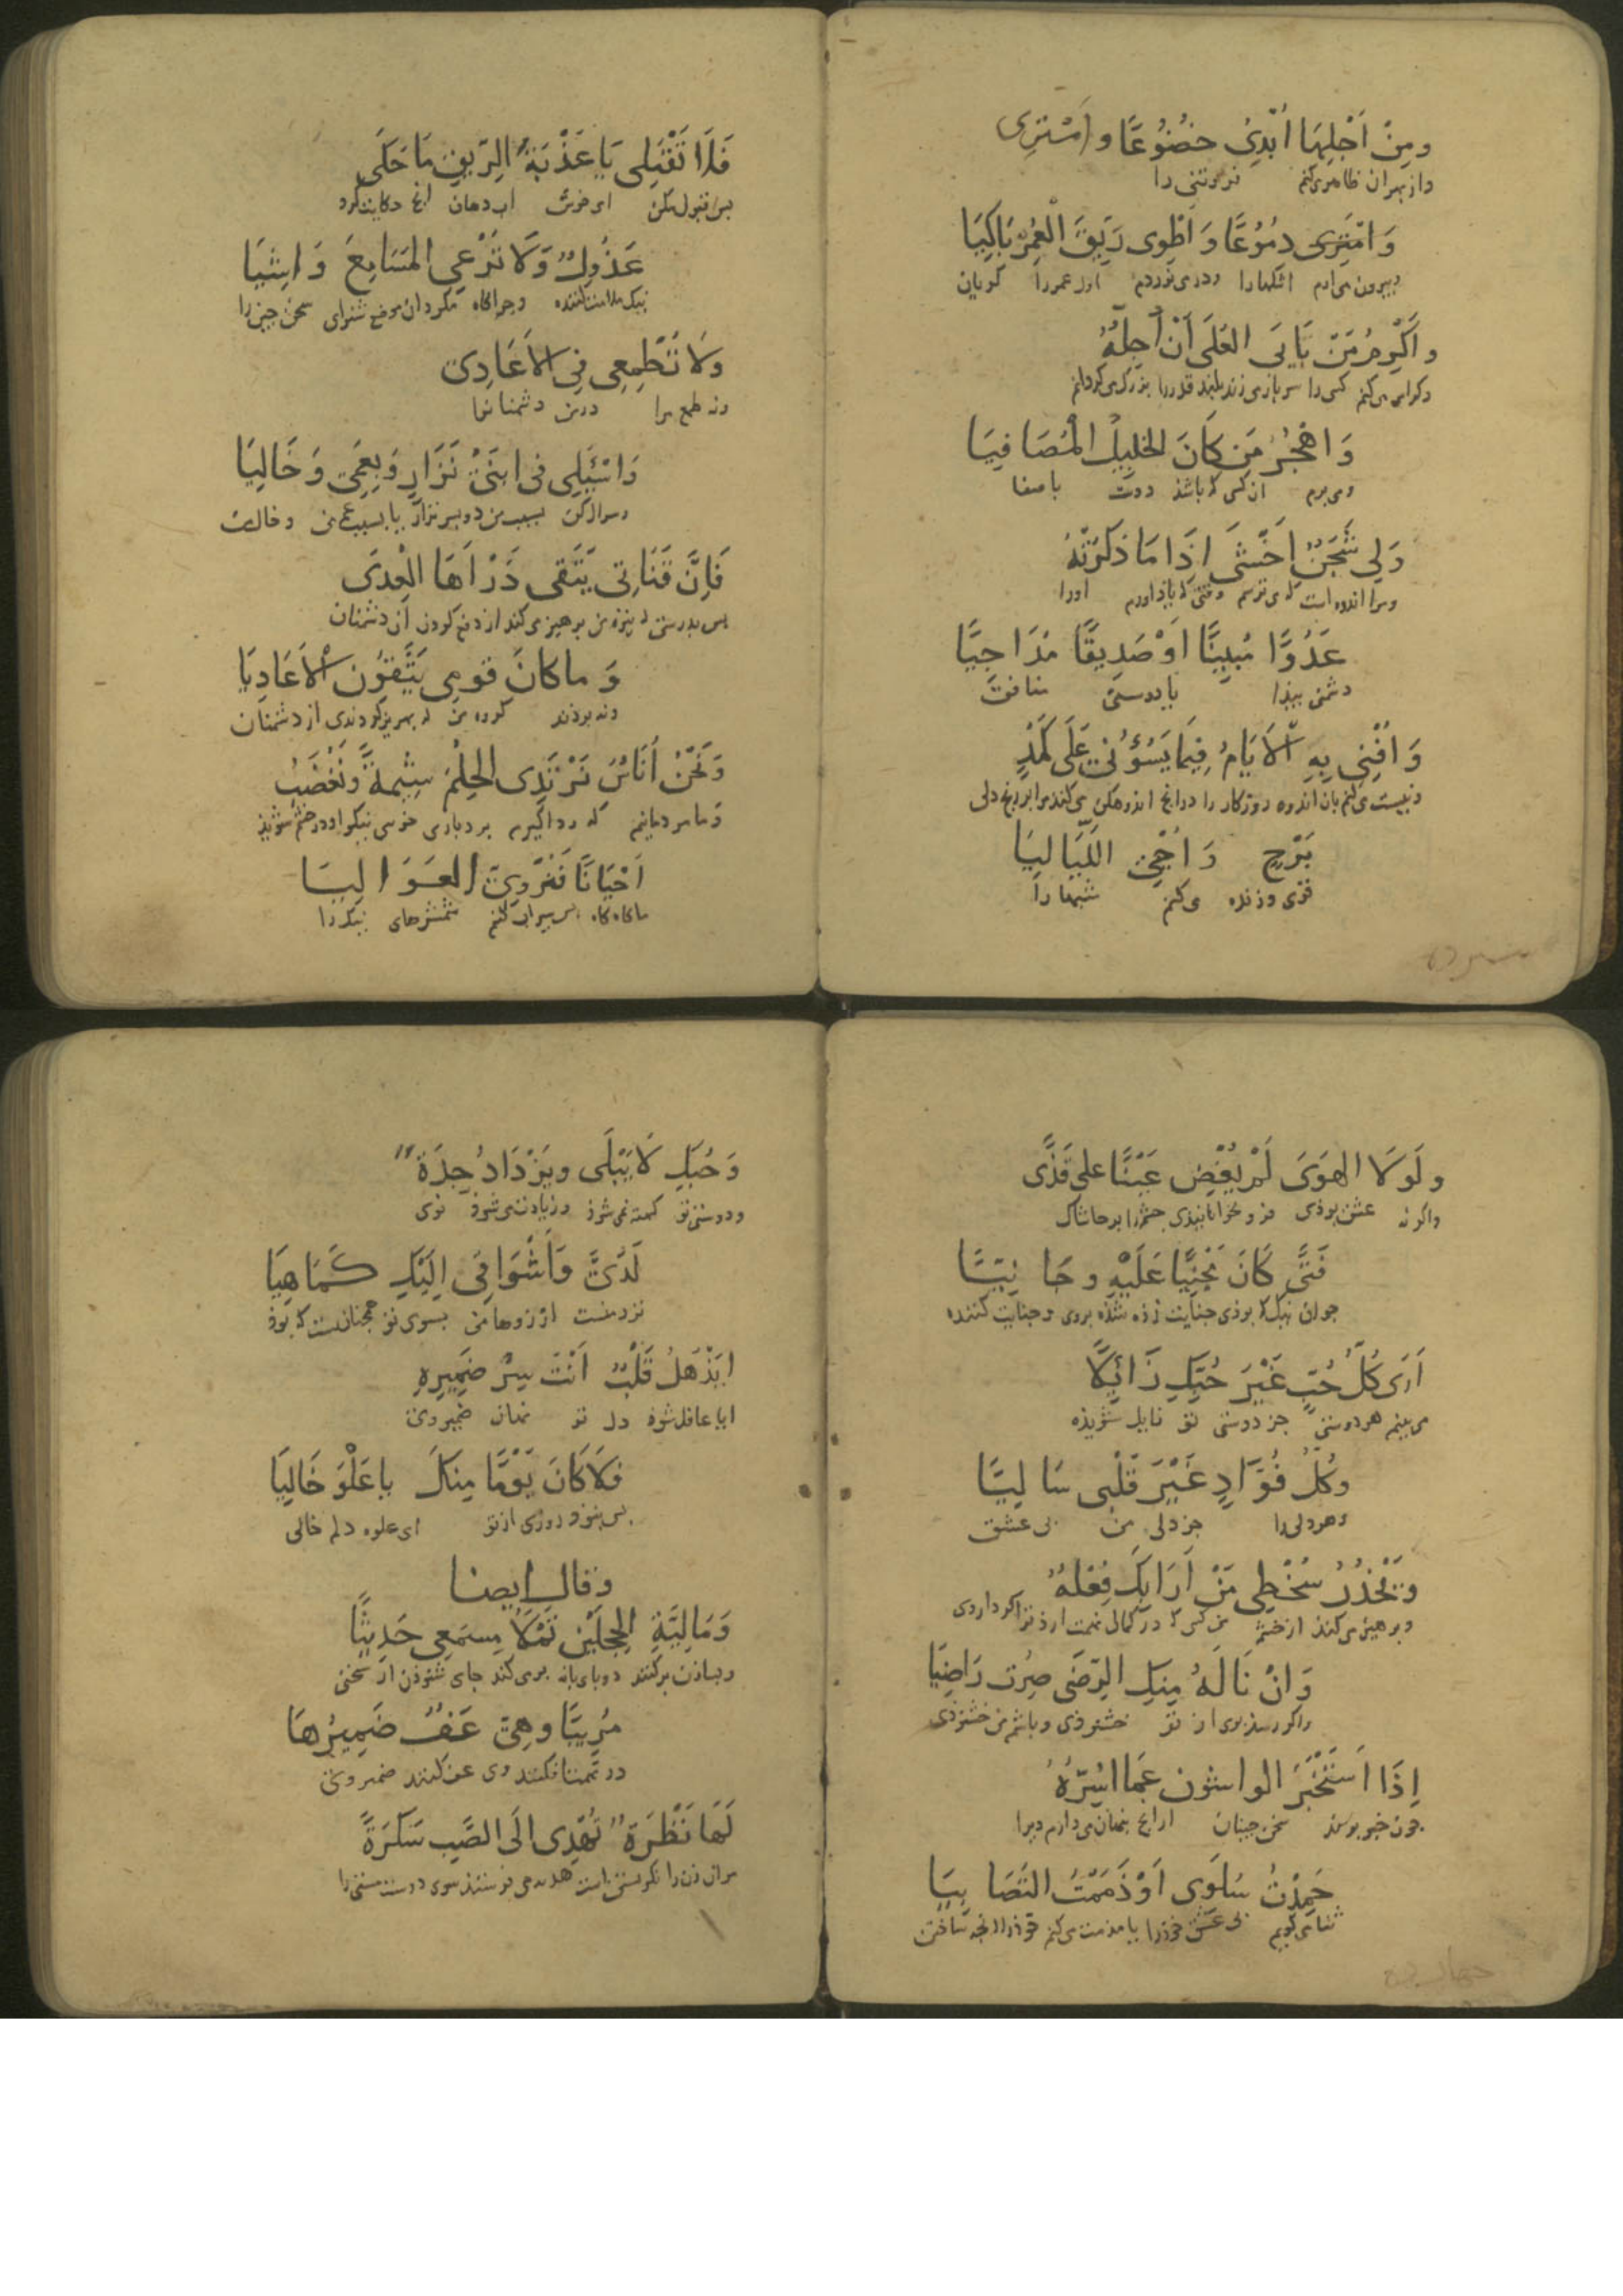 ومِنْ اَجْلِهَا اُبْدِیُ خُضُوْعًا و اَمْتَرِی
و از بهر ان ظاهر می‌کنم فروتنی را
وَ اَمْتَرِی دمُوْعًا وَ اَطْوِی رَیِّقَ الْعُمْرِ بَاکِیَا
و بیرون می‌ارم اشکها را و در می‌نوردم اول عمر را کریان
و اُکْرِمُ مَنْ یَابَی العُلَی اَنْ اُجِلَّهُ
و کرامی می‌کنم کسی را سر باز می‌زند بلند قدر را بزرک می‌کردانم
وَ اهْجُرُ مَن کَانَ الخَلِیلَ الْمُصَافِیَا
و می‌برم ان کس که باشذ دوست با صفا
وَلِی شَجَنٌ اَخْشَی اِذَا مَا ذَکَرْتُهُ
و مرا اندوه است که می‌ترسم وقتی که یاذ اورم اورا
عَدُوًّا مُبِینًا اَوْ صَدِیقًا مُدَاجِیًا
دشمن پیذا یا دوستی منافق
وَ اُفْنِی بِهِ الْاَیَامُ فِیمَا یَسُوْءُنِی عَلَی کَمَدٍ
و نیست می‌کنم بان اندوه روزکار را در انچ اندوهکن می‌کند مرا بر رنج دلی
بَرْحٍ وَ اُحْیِی اللَّیَالِیَا
قوی و زنده می‌کنم شبها را
فَلَا تَقْبَلِی یَا عَذْبَةَ الرِّیقِ مَا حَکَی
پس قبول مکن ای خوش اب دهان انچ حکایت کرد
عَذُولٌ وَلَا تُرْعِی المَسَامِعَ وَاشِیَا
نیک ملامت کننده و چراکاه مکردان موضع شنوای سخن چین را
وَلَا تُطْمِعِی فِیَّ الاَعَادِیَ
و نه طمع مرا در من دشمنانما
وَ اسْئَلِی فی ابنَیْ نِزَارٍ وَ بِعَمِّی وَ خَالِیَا
و سوال کن بسبب من دو پسر نزار یا بسبب عم من و خال من
فَاِنَّ قَنَاتِی یَتَّقی دَرْاَهَا الْعِدَی
پس بدرستی که نیزه من پرهیز می‌کند از دفع کردن ان دشمنان
وَ ما کانَ قومِی یَتَّقوُن الْاَعَادِیَا
و نه بوذند کروه من که پرهیز کردندی از دشمنان
وَ نَحْنُ اُنَاسٌ نَرْتَدِی الحِلْمَ شِیْمَةً وَ نَغْضَبُ
و ما مردمانیم که ردا کیریم بردباری خوی نیکو او در خشم شویذ
اَحْیَانًا فَنُرْوِی العَوَالِیَا
ما کاه کاه پس سیراب کنیم شمشرهای نیک را
ولَولَا الهَوَی لَمْ یُغْضِ عَیْنًا علی قَذًی
و اکر نه عشق بوذی فرو نخوابانیذی چشم را بر خاشاک
فَتًی کَانَ مَجْنِیًّا عَلَیْهِ و جَانِیًا
جوان نیک که بوذی جنایت زده شذه بر وی و جنایت کننده
اَرَی کُلَّ حُبٍّ غَیْرَ حُبِّکِ زَائِلًا
می‌بینم هر دوستی جز دوستی تو زایل شوینده
وکُلَّ فُؤَادٍ غَیْرَ قَلْبِی سَالِیًا
و هر دلی را جز دلی من بی عشق
وَیَحْذَرُ سُخْطِی مَنْ اَرَابَکِ فِعْلُهُ
و پرهیز می‌کند از خشم من کسی که در کمان تهمت ارذ ترا کردار وی
وَ انْ نَالَهُ مِنکِ الرِّضَی صِرْت رَاضِیَا
و اکر رسذ بوی از تو خشنوذی و باشم من خشنوذی
اِذَا اَسْتَخْبَرَ الواشون عَمَّا اُسِرُّهُ
چون خبر پرسند سخن چینان از انچ پنهان می‌دارم ویرا
حَمِدْتُ سُلُوِّی اَوْ ذَمَمْتُ التَصَابِیَا
ثنا می‌کویم بی عشقی خوذ را یا مذمت می‌کنم خوذ را بچه ساختن
وَ حُبُّکِ لَا یَبْلَی و یَزْدَادُ جِدَةً
و دوستی تو کهنه نمی‌شوذ و زیادت می‌شوذ نوی
لَدَیَّ وَاَشْوَاقِی اِلَیْکِ کَمَا هِیَا
نزد منست ارزوها من بسوی تو همچنانست که بوذ
اَیَذْهَلُ قَلْبٌ اَنْتِ سِرُّ ضَمِیرِهِ
ایا غافل شوذ دل تو نهان ضمیر وی
فلَا کَانَ یَوْمًا مِنکِ یا عَلْوَ خَالِیَا
پس نبوذ روزی از تو ای علوه دلم خالی
وقال ایضا
وَمَالِیَةِ الحِجْلَیْن تَمْلَاُ مِسمَعِی حَدِیثًا
و بسا زن پر کننده دو پای پایه پر می‌کند جای شنوذن از سخنی
مُرِیبًا وهِیَ عَفٌّ ضَمِیرُهَا
در تهمت افکننده وی عف کننده ضمیر وی
لَهَا نَظْرَة تُهْدِی اِلَی الصَّبِّ سَکْرَةً
مر ان زن را نکرستنی است هدیه می‌فرستد سوی دوست مستی را